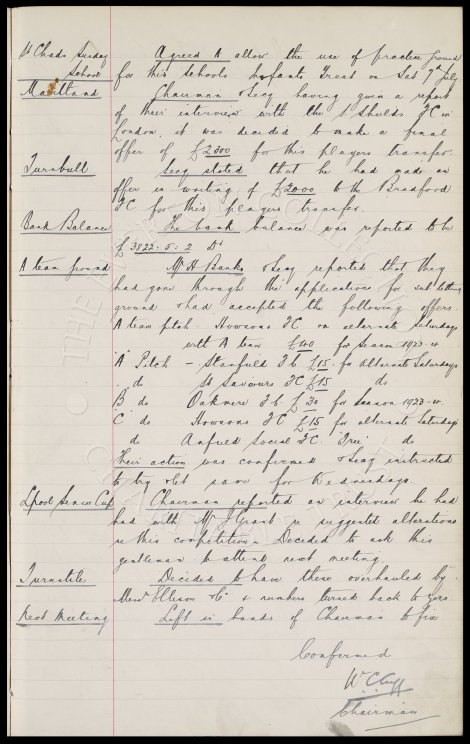 St Chads Sunday School
Agreed to allow the use of practice ground
for this Schools Infants Treat on Sat 7 July
Maitland
Chairman & Secy having given a report
of their interview with the S Shields FC in
London, it was decided to make a final
offer of £2300 for this players transfer.
Turnbull
Secy stated that he had made an
offer in writing of £2000 to the Bradford
FC for this players transfer.
Bank Balance
The bank balance was reported to be
£3822:5:2 Dt
A team ground
Mr H Banks & Secy reported that they
had gone through the applications for sub letting
ground & had accepted the following offers.
A team pitch - Howsons FC on alternate Saturdays
with A team £40 for season 1923-4.
A Pitch - Stanfield FC £15 for Alternate Saturdays
do St Saviours FC £15 do
B do Oakmere FC £30 for season 1923-4.
C do Howsons FC £15 for alternate Saturdays
do Anfield Social FC Free do
Their action was confirmed & Secy instructed
to try & let same for Wednesdays.
Lpool Senior Cup
Chairman reported an interview he had
had with Mr J Grant re suggested alterations
re this competition - Decided to ask this
gentleman to attend next meeting.
Turnstile
Decided to have these overhauled by
Messrs Ellison & Co & numbers turned back to zero
Next Meeting
Left in hands of Chairman to fix
Confirmed
W C Cuff
Chairman